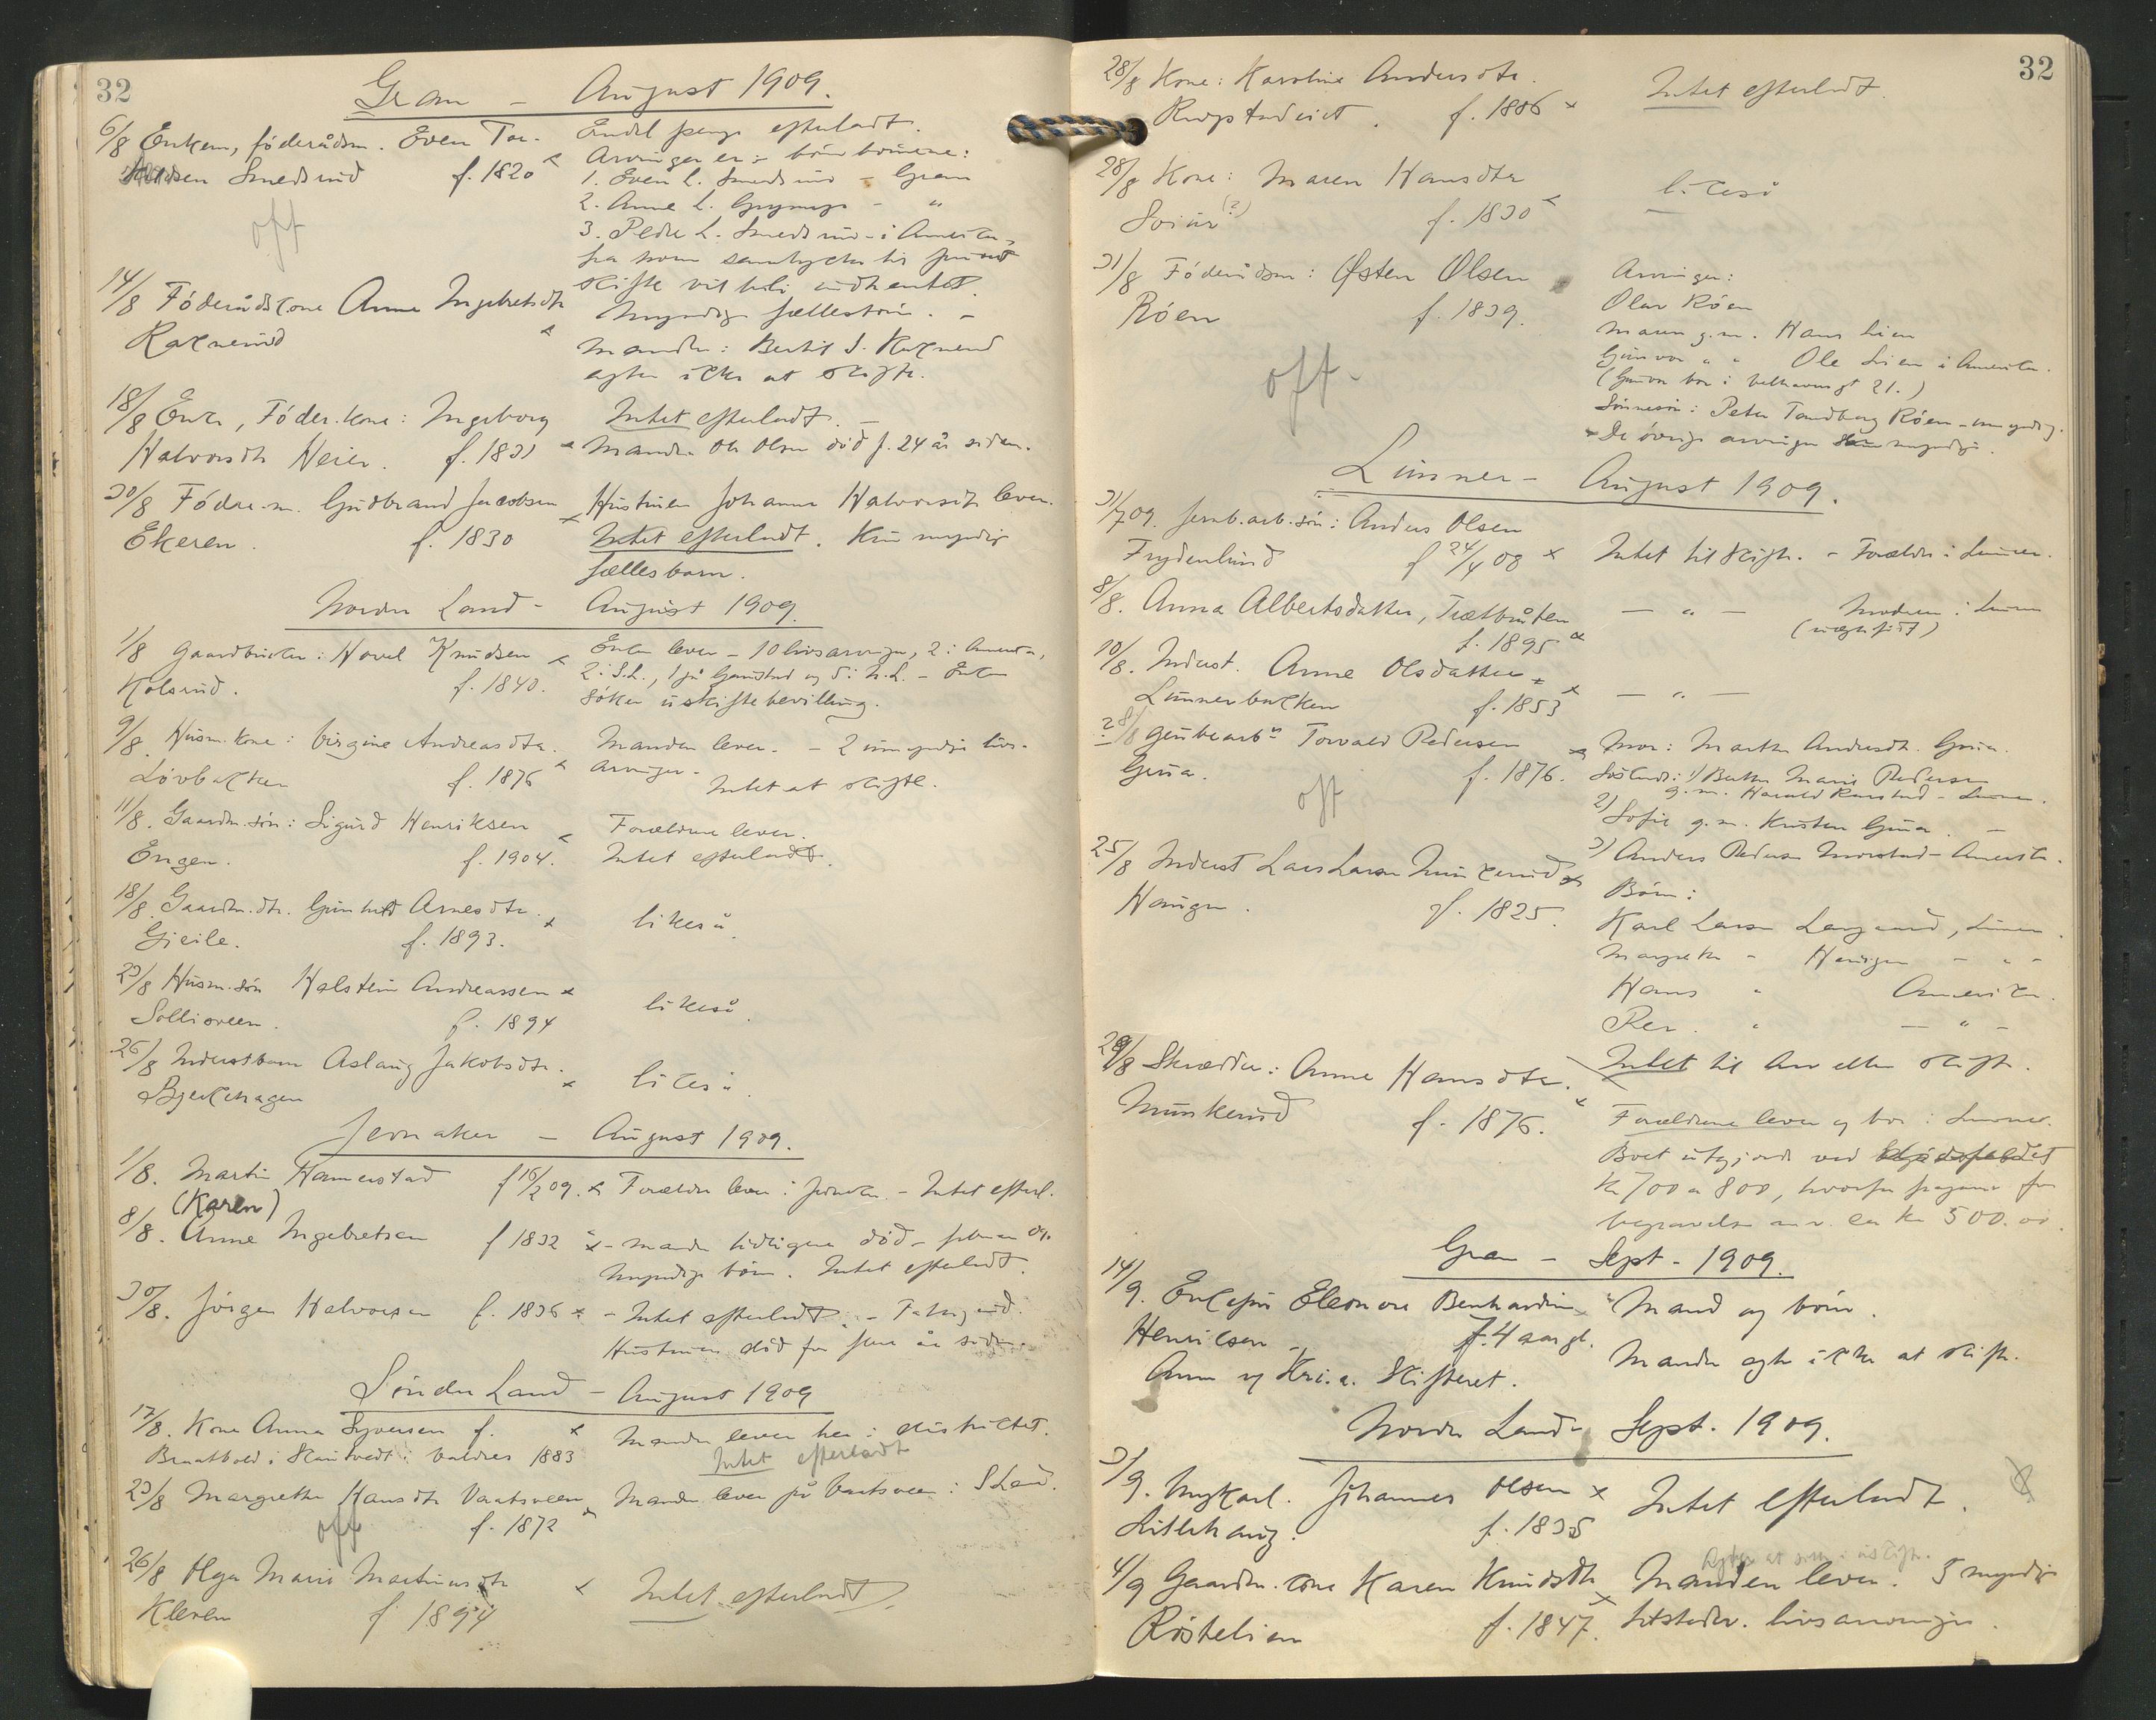 32
Gran - August 1909.
6/8 Enkem, föderådsm. Even Tor-
Smedsrud f. 1820 x
off
Endel penge efterladt.
Arvinger er : barnebörnene:
1. Even L. Smedsrud - Gran
2. Anne L. - "
3. Peder L. Smedsrud - i Amerika,
fra hvem samtykke til privat
skifte vil bli indhentet.
14/8 Föderådskone Anne Ingebretsdtr
Raknerud x
Myndige fællesbörn. -
Manden: Bertil I. Raknerud
agter ikke at skifte.
18/8 Enke, Föder.kone: Ingeborg
Halvorsdtr Heier. f. 1831 x
Intet efterladt. -
Manden Ole Olsen död f. 24 år siden.
30/8 Föder.m. Gudbrand Jacobsen
Ekeren. f. 1830 x
Hustruen Johanne Halvorsdtr lever.
Intet efterladt. Kun myndig
fællesbarn.
Nordre Land - August 1909.
1/8 Gaardbruker: Hovel Knudsen x
Kolsrud. f. 1840.
Enken lever - 10 livsarvinger, 2 i Amerika,
2 i S.L., 1 på og 5 i N.L. - Enken
söker uskiftebevilling.
9/8 Husm. kone: Birgine Andreasdtr.
Lövbakken f. 1876 x
Manden lever. - 2 umyndige livs-
arvinger.
Intet at skifte.
11/8. Gaardm.sön: Sigurd Henriksen x
Engen. f. 1904.
Forældrene lever.
Intet efterladt.
18/8. Gaardm.dtr. Gunhild Arnesdtr.
Gjeile. f. 1893. x
likeså.
23/8 Husm.sön Halstein Andreassen x
Sollioreen. f. 1894
likeså.
26/8 Inderstbarn Aslaug Jakobsdtr.
Bjerkehagen x
likeså.
Jevnaker - August 1909.
1/8. Martin Hamerstad f 16/2 09. x Forældre lever i Jevnaker. - Intet efterl.
(Karen)
8/8. Anne Ingebretsen f 1832 x - Mand tidligere död - februar 09.
Myndige börn. Intet efterladt.
30/8. Jörgen Halvorsen f. 1836 x - Intet efterladt. - Fattigund.
Hustruen död for flere år siden.
Söndre Land - August 1909
17/8. Kone Anna Syversen f. x
Braatbold i Skautvedt i Valdres 1883
Manden lever her i distriktet.
Intet efterladt
23/8 Margrethe Hansdtr Vaatsveen x
off f. 1872
Manden lever på Vaatsveen i S Land.
26/8 Olga Marie Martinusdtr x
Kleven f 1894
Intet efterladt.
32
28/8 Kone: Karoline Andersdtr.
f. 1886 x
Intet efterladt.
28/8 Kone: Maren Hansdtr
(?) f. 1830 x
likeså
31/8 Föderådsm: Østen Olsen
Röen f. 1839.
off.
Arvinger:
Olav Röen
Maren g.m. Hans Lien
Gunvor " " Ole Lien i Amerika.
Sönnesön: Peter Tandberg Röen - umyndig.
De övrige arvinger myndige.
Lunner - August 1909.
31/7 09. Jernb.arb.sön: Anders Olsen
Frydenlund f 24/4 08 x
Intet til skifte. - Forældre i Lunner.
8/8. Anna Albertsdatter, Trætbråten
f. 1895 x
- " - Moderen i Lunner
(uægte född)
10/8. Inderst. Anne Olsdatter
Lunnerbakken f. 1853 x
- " -
? 8/8 Torvald Pedersen x
Grua. f. 1876.
off
Mor: Marthe Andersdtr. Grua.
Söskende: 1) Berthe Marie Pedersen
g.m. Harald - Lunner.
2) Sofie g.m. Kristen Grua. -
3) Anders Pedersen - Amerika.
25/8 Inderst Lars Larsen Munkerud x
Haugen. f. 1825.
Börn:
Karl Larsen , Lunner.
Margrethe - Haugen - " -
Hans " Amerika.
Per. " - " -
29/8 Skrædder: Anne Hansdtr.
Munkerud f. 1876. x
Intet til Arv eller skifte.
Forældrene lever og bor i Lunner.
Boet utgjorde ved
kr 700 a 800, hvorfra fragaar for
begravelse m.v. ca kr 500.00.
Gran - Sept - 1909.
14/9. Enkefru Eleonore Benhardine x
Henriksen - 74 aar gl.
Anm. og Kr.i.a. Skifteret.
Mand og börn.
Manden agter ikke at skifte.
Nordre Land - Sept. 1909.
3/9. Ungkarl. Johannes Olsen x
Litlehaug. f. 1835
Intet efterladt.
4/9 Gaardm.kone Karen Knudsdtr x
Röstelien f. 1847.
Agter at sitte i uskifte.
Manden lever. 5 myndige
livsarvinger.